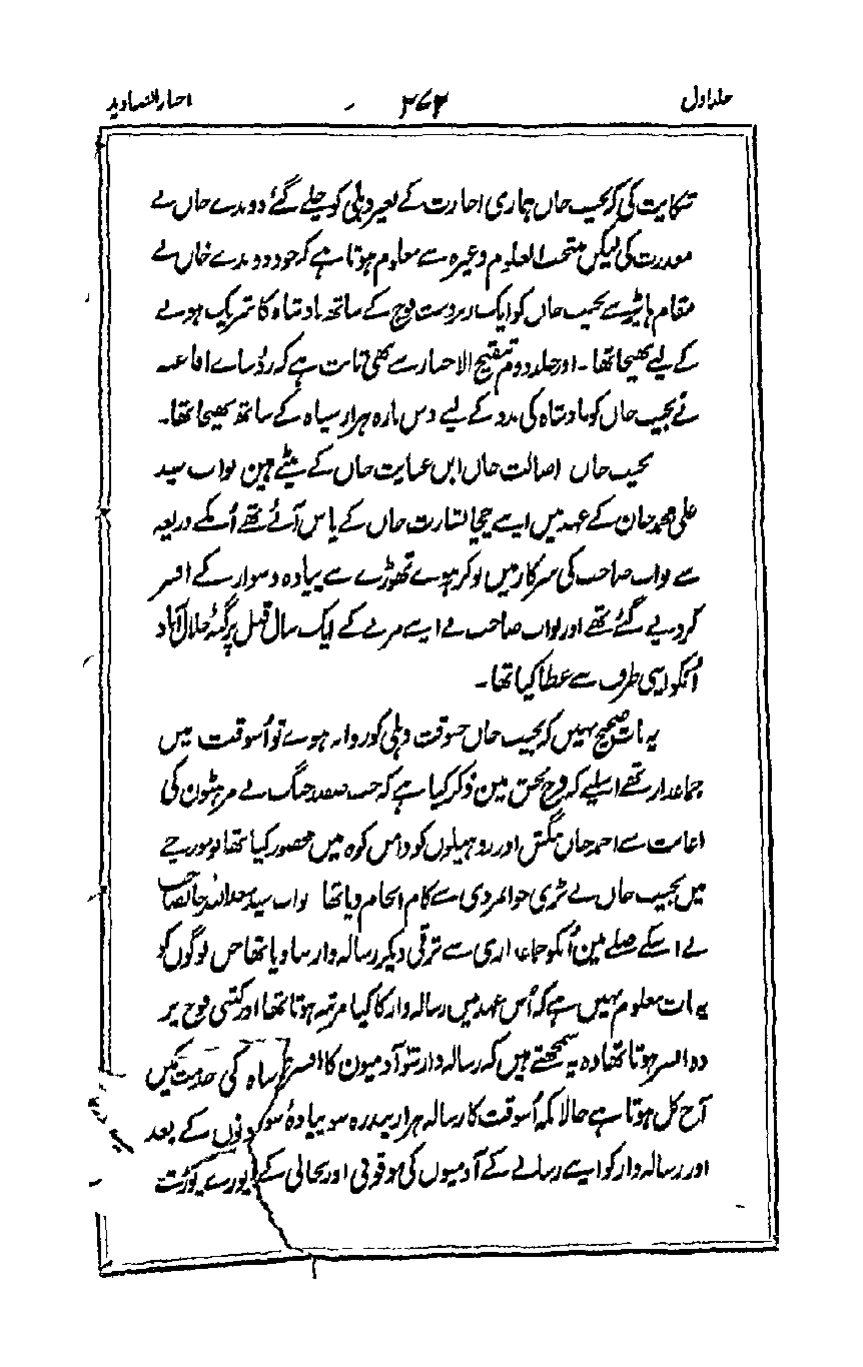 جلد اول ۲۷۲ اخبار الصنادید
شکایت کی کہ نجیب خاں ہماری اجازت کے بغیر دہلی کو چلے گئے دوندے خاں نے
معذرت کی لیکن منتخب العلوم وغیرہ سے معلوم ہوتا ہے کہ خود دوندے خاں نے
مقام سے نجیب خاں کو ایک زبردست فوج کے ساتھ بادشاہ کا شریک ہونے
کے لیے بھیجا تھا ۔ اور جلد دوم تنقیح الاخبار سے بھی ثابت ہے کہ رؤساے افاغنہ
نے نجیب خاں کو بادشاہ کی مدد کے لیے دس بارہ ہزار سپاہ کے ساتھ بھیجا تھا۔
نجیب خاں اصالت خاں ابن عنایت خاں کے بیٹے ہین نواب سید
علی محمد خان کے عہد میں اپنے چچا بشارت خاں کے پاس آئے تھے اُسکے ذریعہ
سے نواب صاحب کی سرکار میں نوکر ہوے تھوڑے سے پیادہ و سوار کے افسر
کردیے گئے تھے اور نواب صاحب نے اپنے مرنے کے ایک سال قبل پرگنۂ جلال آباد
اُنکو اپنی طرف سے عطا کیا تھا۔
یہ بات صحیح نہیں کہ نجیب خاں جسوقت دہلی کو روانہ ہوے تو اُسوقت میں
جماعدار تھے اسلیے کہ فرح بخش مین ذکر کیا ہے کہ جب صفدر جنگ نے مرہٹون کی
اعانت سے احمد خاں بنگش اور روہیلوں کو دامن کوہ میں محصور کیا تھا تو مورچے
میں نجیب خاں نے بڑی جوانمردی سے کام انجام دیا تھا نواب سید سعد اللہ خاں صاحب
نے اسکے صلے مین اُنکو جماعداری سے ترقی دیکر رسالہ دار بنا دیا تھا جن لوگوں کو
یہ بات معلوم نہیں ہے کہ اُس عہد میں رسالہ دار کا کیا مرتبہ ہوتا تھا اور کتنی فوج پر
وہ افسر ہوتا تھا وہ یہ سمجھتے ہیں کہ رسالہ دار سو آدمیون کا افسر
آج کل ہوتا ہے حالانکہ اُسوقت کا رسالہ ہزار پندرہ سو پیادہ کے بعد
اور رسالہ دار کو اپنے رسالے کے آدمیوں کی موقوفی اور بحالی کے پورے